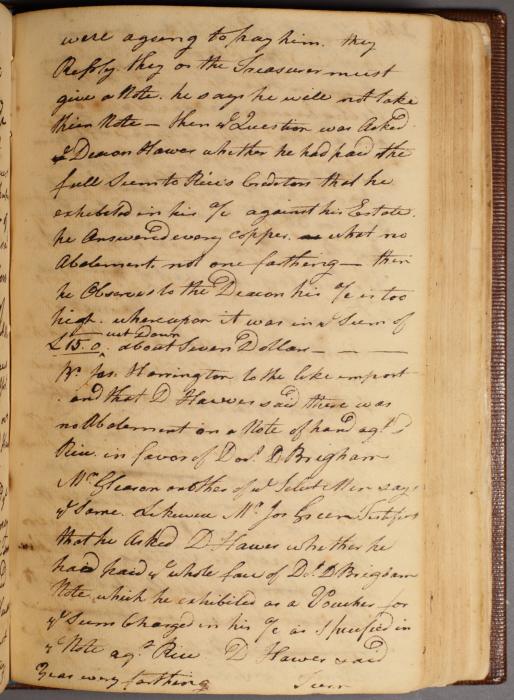 were agoing to pay him. they
Reply. they or the Treasurer must
give a Note. he says he will not take
thier Note — then ye Question was Asked
Deacon Hawes whether he had paid the
full Sum to Rice's Creditors that he
exhibited in his a/c against his Estate.
he Answered every Copper. what no
Abatement. not one farthing — then
he Observes to the Deacon his a/c is too
high. whereupon it was in ye Sum of
£15.0. cut down about Seven Dollars — — —
Jas. Harrington to the like import
and that D Hawes said there was
no Abatement on a Note of hand agt. D
Rice in favor of Doct. D Brigham
Mr. Gleason another of ye Select Men says
ye Same. Likewise Mr. Jos Green Testifies
that he Asked D Hawes whether he
had paid ye whole face of Dr. D Brigham
Note which he exhibited as a Voucher for
ye Sum Charged in his a/c as Specified in
ye Note agt. Rice D Hawes said
Yeas every farthing